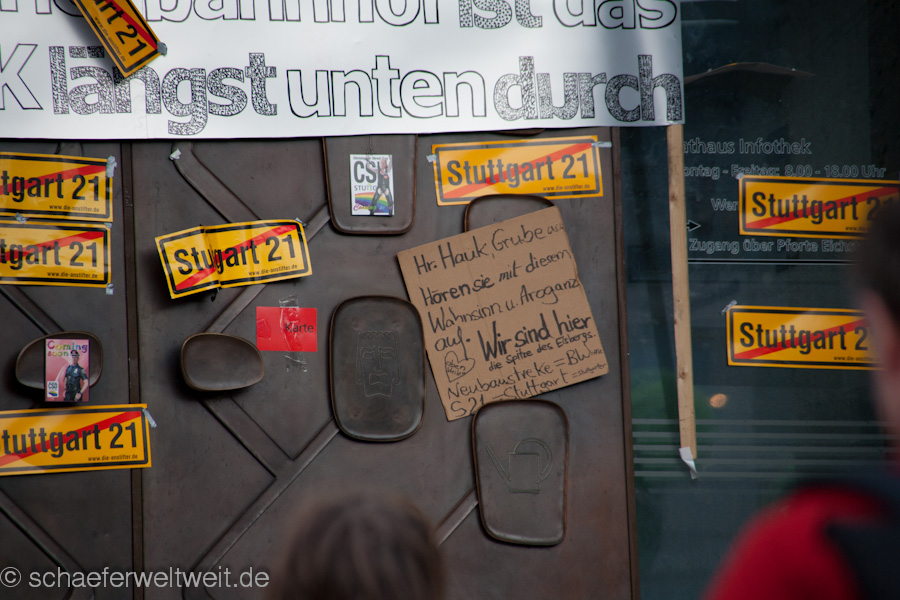 bahnhof ist das
K längst unten durch
Stuttgart 21
Stuttgart 21
www.die-anstifter.de
tuttgart 21
www.die-anstifter.de
tuttgart 21
www.die-anstifter.de
Stuttgart 21
www.die-anstifter.de
CS
Stuttgart 21
www.die-anstifter.de
Karte
Coming
soon
CSD
Stuttgart 21
www.die-anstifter.de
Hr. Hauk, Grube u.
Hören sie mit diesem
Wahnsinn u. Arroganz
auf. Wir sind hier
die spitze des Eisbergs.
Neubaustrecke = BW
S 21 = Stuttgart =
athaus Infothek
ontag - Freitag: 8.00 - 18.00 Uhr
Stuttgart
Zugang über Pforte Eich
Stuttgart 2
© schaeferweltweit.de